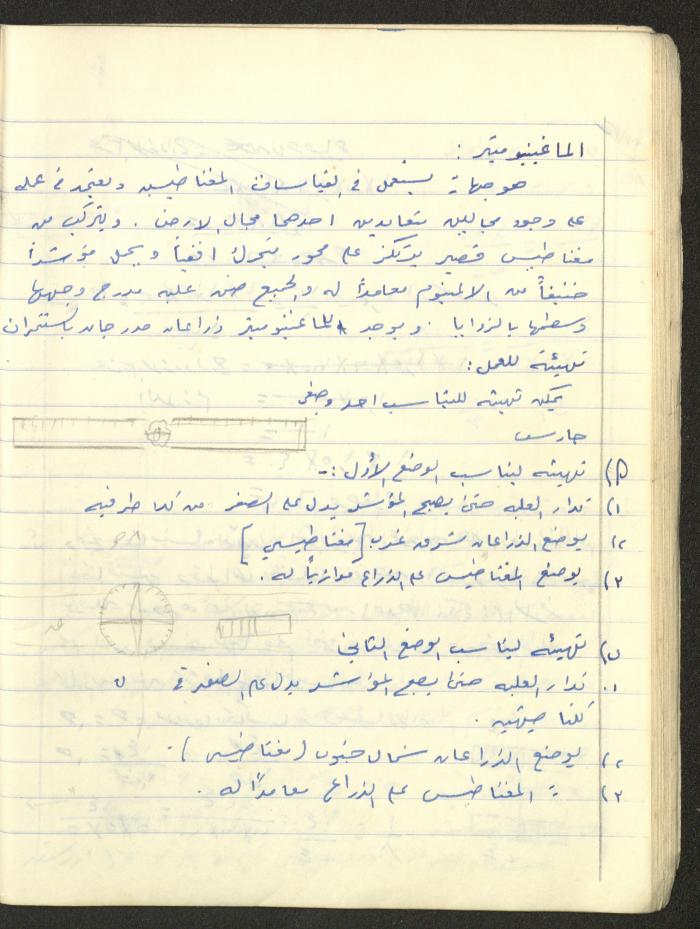 الماغنيتومتر :
هو جهاز يستعمل في القياسات المغناطيسيه ويعتمد في عمله
على وجود مجالين متعامدين احدهما مجال الارض . ويتركب من
مغناطيس قصير يرتكز على محور يتحرك افقياً ويحمل مؤشراً
خفيفاً من الالمنيوم معامداً له والجميع ضمن علبه مدرج وجهها
وسطحها بالزوايا . ويوجد للماغنيتومتر ذراعان مدرجان بالسنتمترات
تهيئته للعمل :
يمكن تهيئته لليناسب احد وضعي
جاوس
A) تهيئته ليناسب الوضع الأول :-
١) تدار العلبه حتى يصبح المؤشر يدل على الصفر من كلا طرفيه
٢) يوضع الذراعان شرق غرب [مغناطيسي]
٣) يوضع المغناطيس على الذراع موازياً له .
ں) تهيئته ليناسب الوضع الثاني
١. تدار العلبه حتى يصبح المؤشر يدل على الصفر في
كلتا جهتيه .
٢) يوضع الذراعان شمال جنوب (مغناطيسي) .
٣) = المغناطيس على الذراع معامداً له .